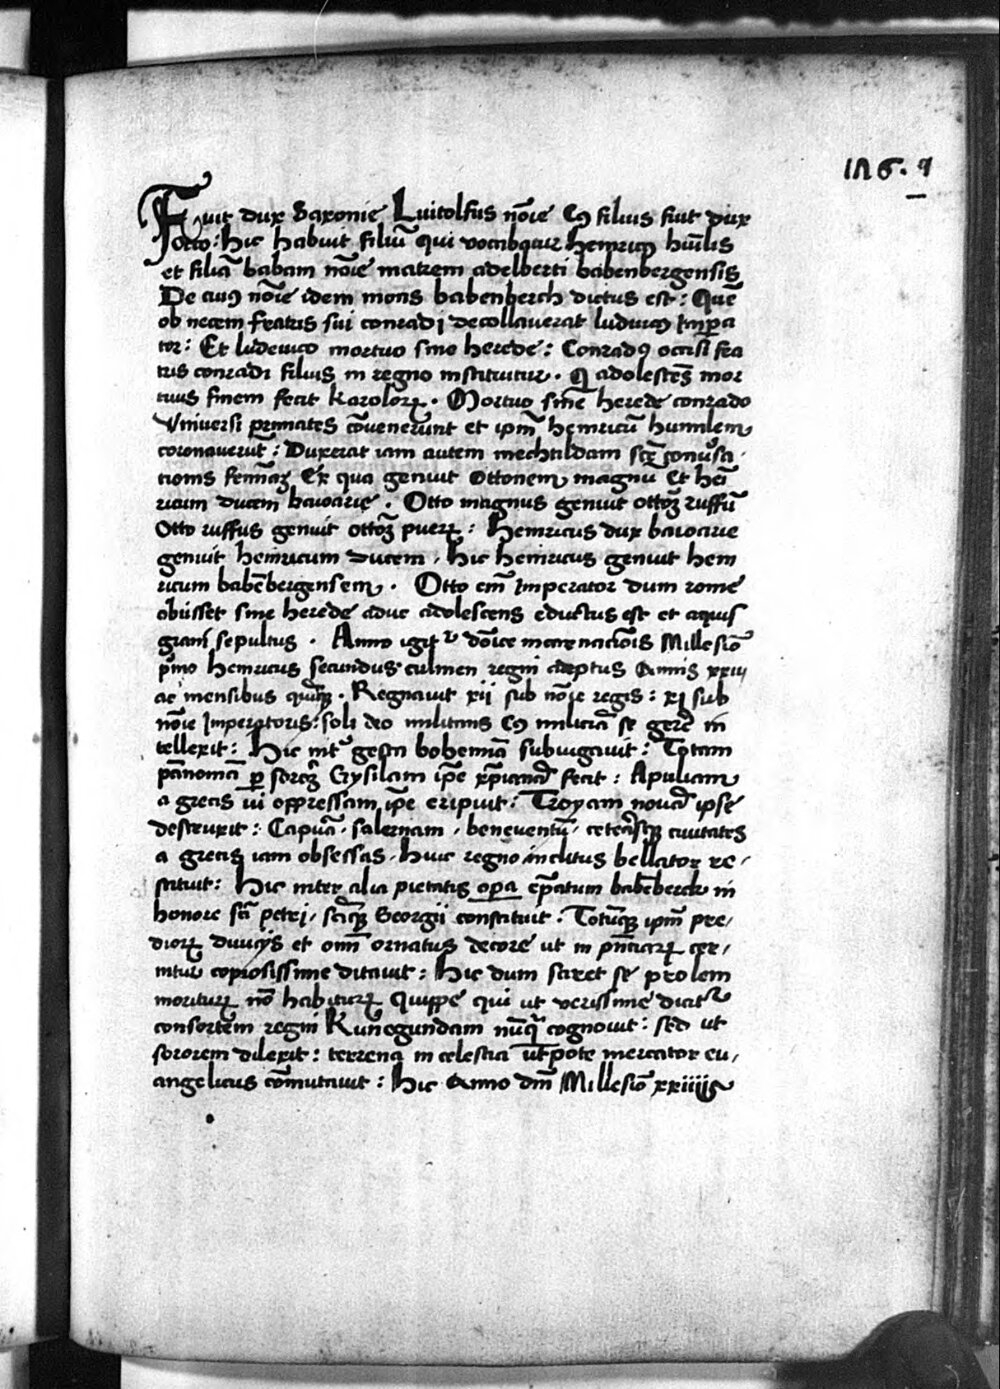 176. 9
Fuit dux Saxonie Luitolfus nōie Cuꝰ filius fuit dux
Otto: hic habuit filiū qui vocabatur heinricꝰ hūīlis
et filiā babam nōie matrem adelberti babenbergensis
De cuiꝰ nōie idem mons babenberch dictus est: Quē
ob necem fratris sui conradi decollauerat ludwicꝰ Impera
tor: Et ludewico mortuo sine herede: Conradꝰ occisi fra
tris conradi filius in regno instituitur. Qui adolescēs mor
tuus finem fecit karolorꝝ. Mortuo sine herede conrado
Vniuersi primates cōuenerunt et ipm̄ heinricū humilem
coronauerūt: Duxerat iam autem mechtildam scē conuersa
tionis feminā Ex qua genuit Ottonem magnū Et hein
ricum ducem bauarie. Otto magnus genuit ottonē ruffū
Otto ruffus genuit ottonē puerꝝ: heinricus dux bauarie
genuit heinricum ducem. hic heinricus genuit hein
ricum babēbergensem. Otto em̄ Imperator dum rome
obiisset sine herede aduc adolescens eductus est et aquis
grani sepultus. Anno igitᷣ dōīce incarnacōīs Millesiō
pͥmo heinricus secundus culmen regni adeptus Annis xxiij
ac mensibus quīqꝫ. Regnauit xij sub nōie regis: xj sub
nōie Imperatoris: soli deo militans Cuꝰ miliciā se gerē in
tellexit: Hic intᷣ gesta bohemiā subiugauit: Totam
pānoniā ꝑ sororē Gysilam ipe xp̄ianā fecit: Apuliam
a grecis vi oppressam ipe eripuit: Troyam nouā ipse
destruxit: Capuā. salernam. beneuentū. ceterasqꝫ ciuitates
a grecis iam obsessas. Huic regno inclitus bellator re-
stituit: Hic inter alia pietatis opera ep̄atum babēberck in
honore scī petrj. sciqꝫ Georgii constituit. Totūqꝫ ipm̄ pre-
diorꝝ diuicijs et omī ornatus decore ut in pn̄ciarꝝ cer-
nitur copiosissime ditauit: Hic dum sciret se prolem
moriturꝝ nō habiturꝝ Quippe qui ut verissime dicitᷣ
consortem regni Kunegundam nūqͣ cognouit: sed ut
sororem dilexit: terrena in celestia vtpote mercator eu-
angelicus cōmutauit: Hic Anno dm̄ Millesiō xxiiiij